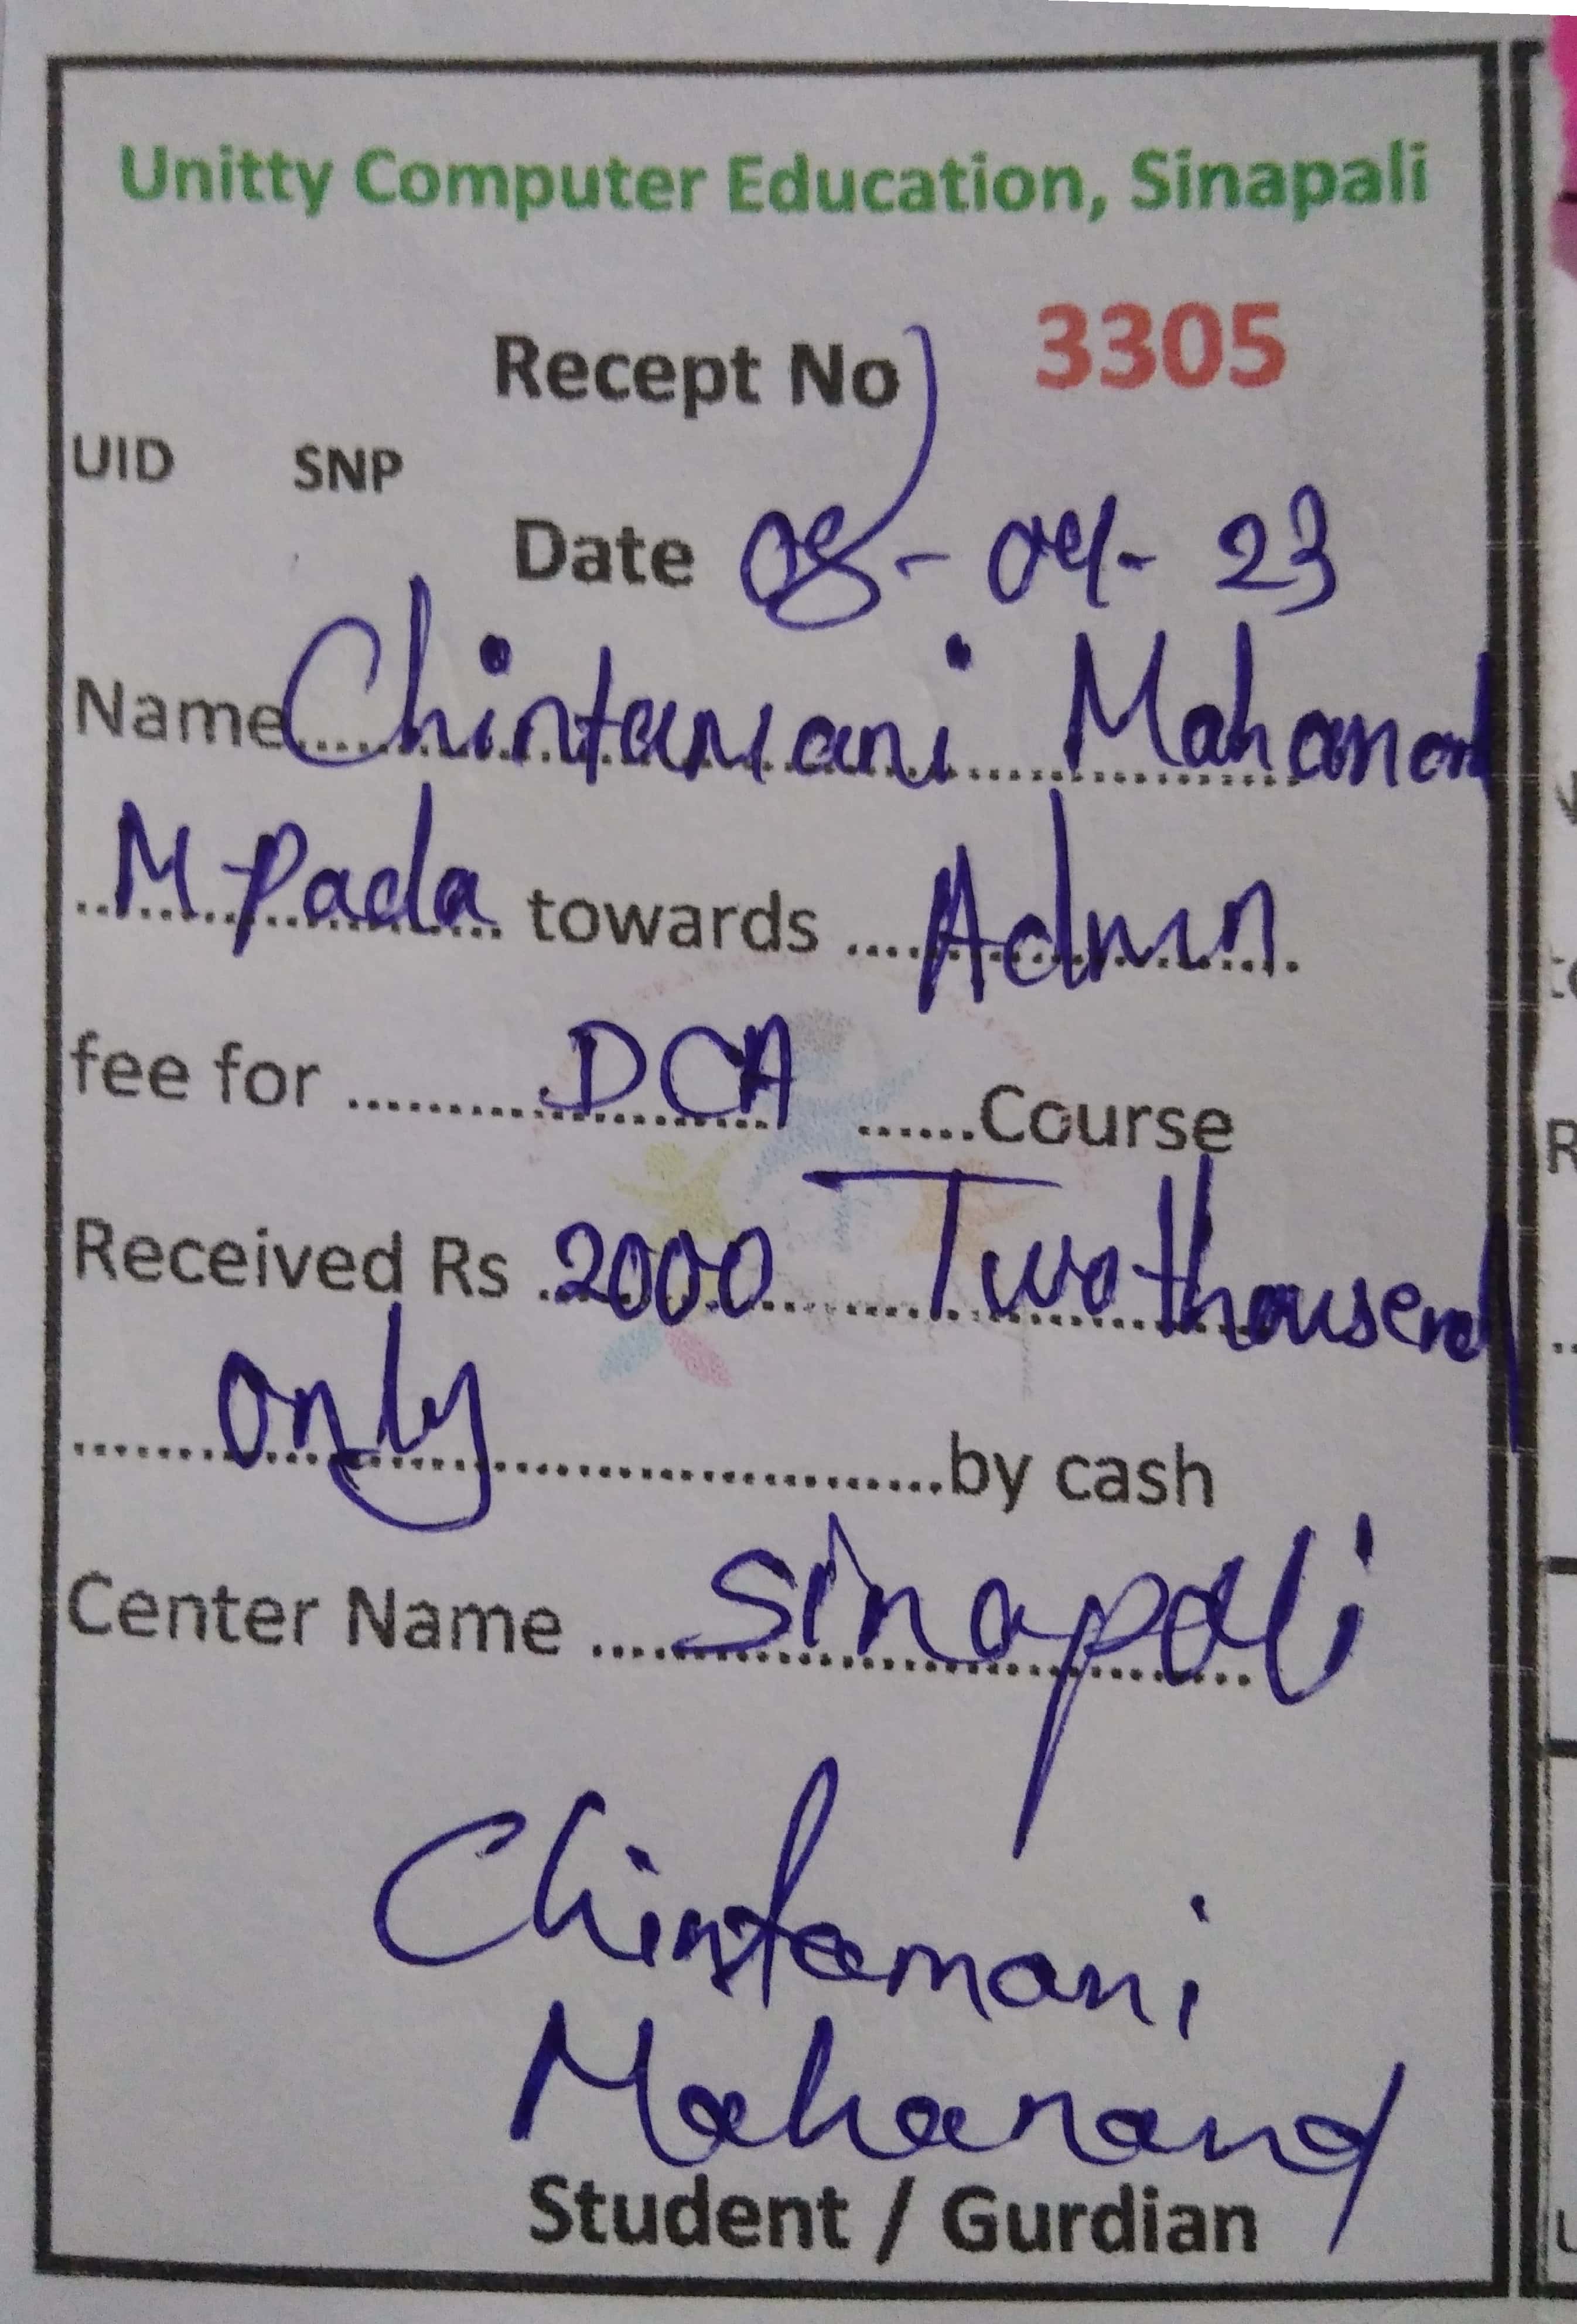 Unitty Computer Education, Sinapali
Recept No 3305
UID SNP
Date 08-04-23
Name Chintamani Mahanand
M. Pada towards Admn
fee for DCA Course
Received Rs 2000 Two thousend
only by cash
Center Name Sinapali
Chintamani
Mahanand
Student / Gurdian